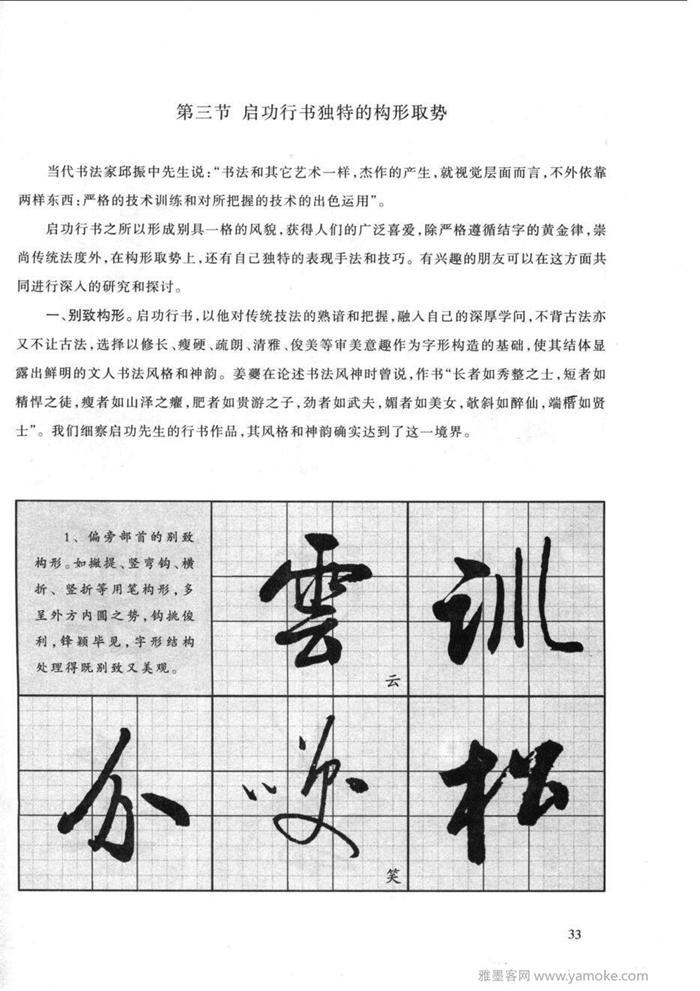 第三节 启功行书独特的构形取势
当代书法家邱振中先生说:“书法和其它艺术一样,杰作的产生,就视觉层面而言,不外依靠
两样东西:严格的技术训练和对所把握的技术的出色运用”。
启功行书之所以形成别具一格的风貌,获得人们的广泛喜爱,除严格遵循结字的黄金律,崇
尚传统法度外,在构形取势上,还有自己独特的表现手法和技巧。有兴趣的朋友可以在这方面共
同进行深入的研究和探讨。
一、别致构形。启功行书,以他对传统技法的熟谙和把握,融入自己的深厚学问,不背古法亦
又不让古法,选择以修长、瘦硬、疏朗、清雅、俊美等审美意趣作为字形构造的基础,使其结体显
露出鲜明的文人书法风格和神韵。姜夔在论述书法风神时曾说,作书“长者如秀整之士,短者如
精悍之徒,瘦者如山泽之癯,肥者如贵游之子,劲者如武夫,媚者如美女,欹斜如醉仙,端楷如贤
士”。我们细察启功先生的行书作品,其风格和神韵确实达到了这一境界。
1、偏旁部首的别致
构形。如撇提、竖弯钩、横
折、竖折等用笔构形,多
呈外方内圆之势,钩挑俊
利,锋颖毕见,字形结构
处理得既别致又美观。
雲 训
云
分 咲 松
笑
33
雅墨客网 www.yamoke.com